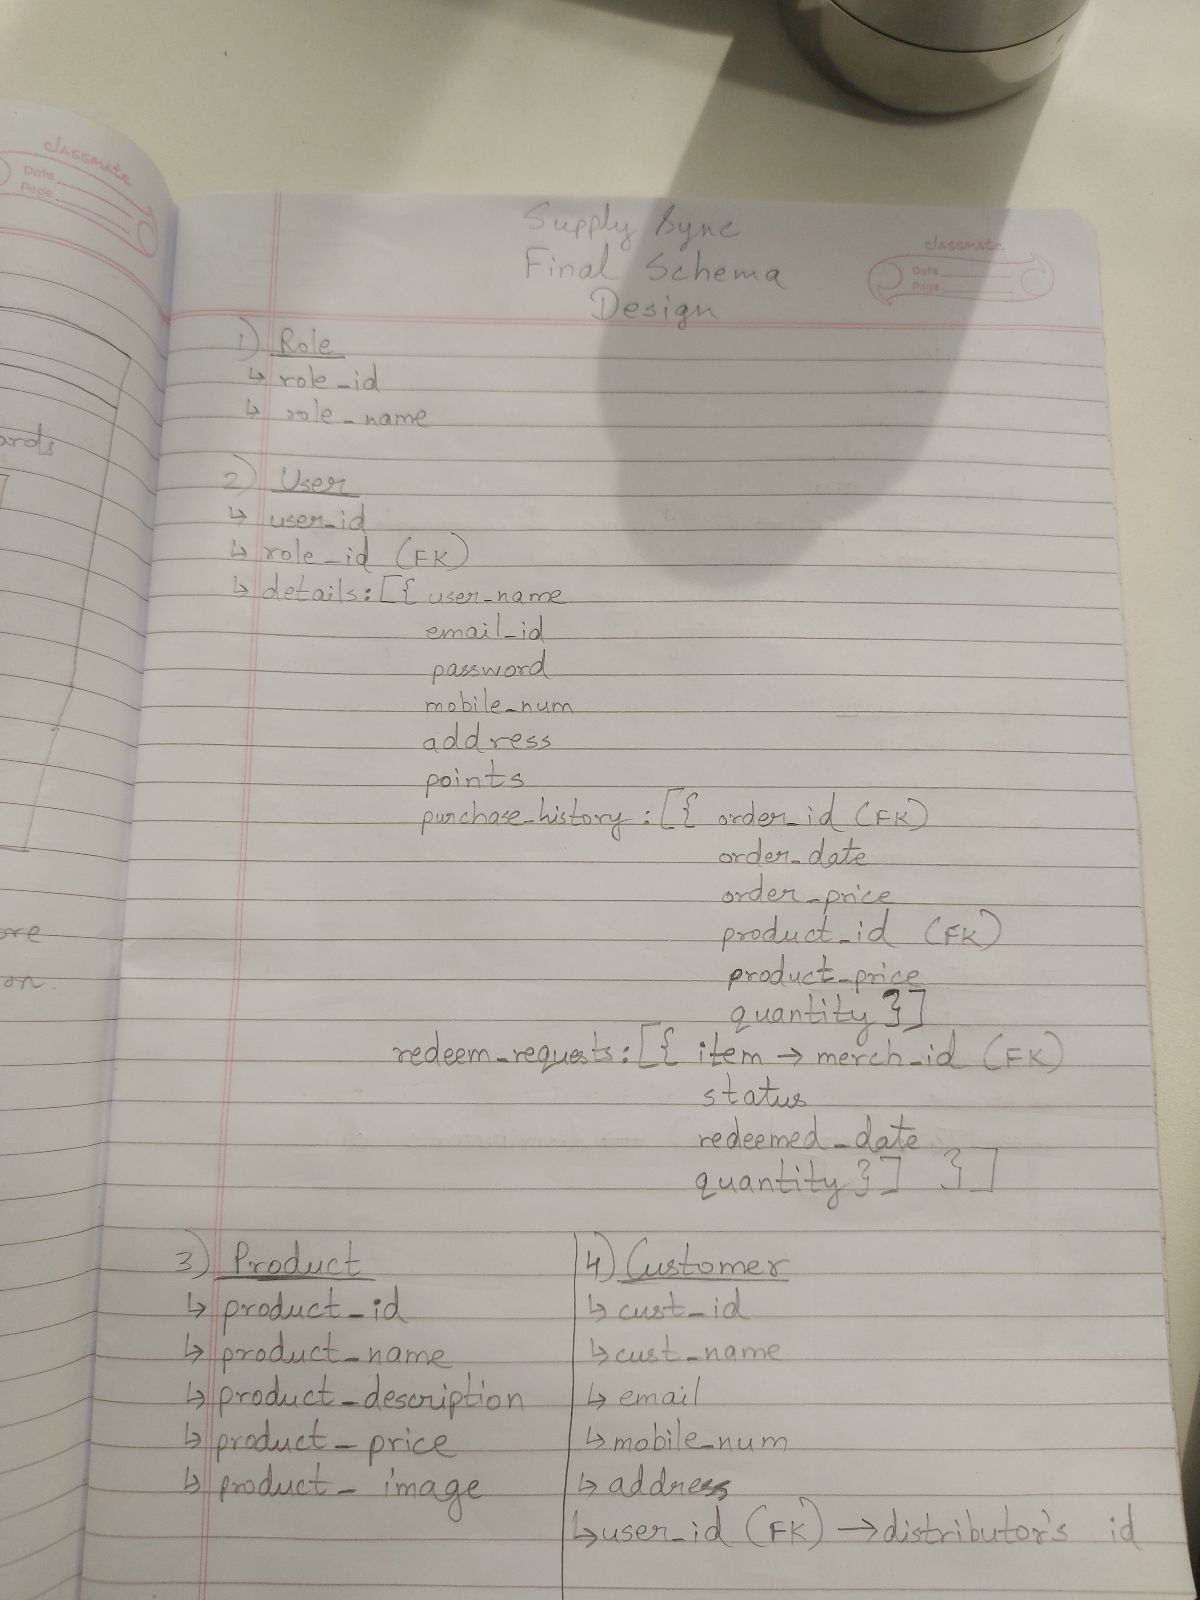 classmate
Date
Page
ards
ore
on.
Supply Sync
Final Schema
Design
classmate
Date
Page
1) Role
↳ role_id
↳ role_name
2) User
↳ user_id
↳ role_id (FK)
↳ details: [{ user_name
email_id
password
mobile_num
address
points
purchase_history: [{ order_id (FK)
order_date
order_price
product_id (FK)
product_price
quantity }]
redeem_requests: [{ item → merch_id (FK)
status
redeemed_date
quantity }] }]
3) Product
↳ product_id
↳ product_name
↳ product_description
↳ product_price
↳ product_image
4) Customer
↳ cust_id
↳ cust_name
↳ email
↳ mobile_num
↳ address
↳ user_id (FK) → distributor's id